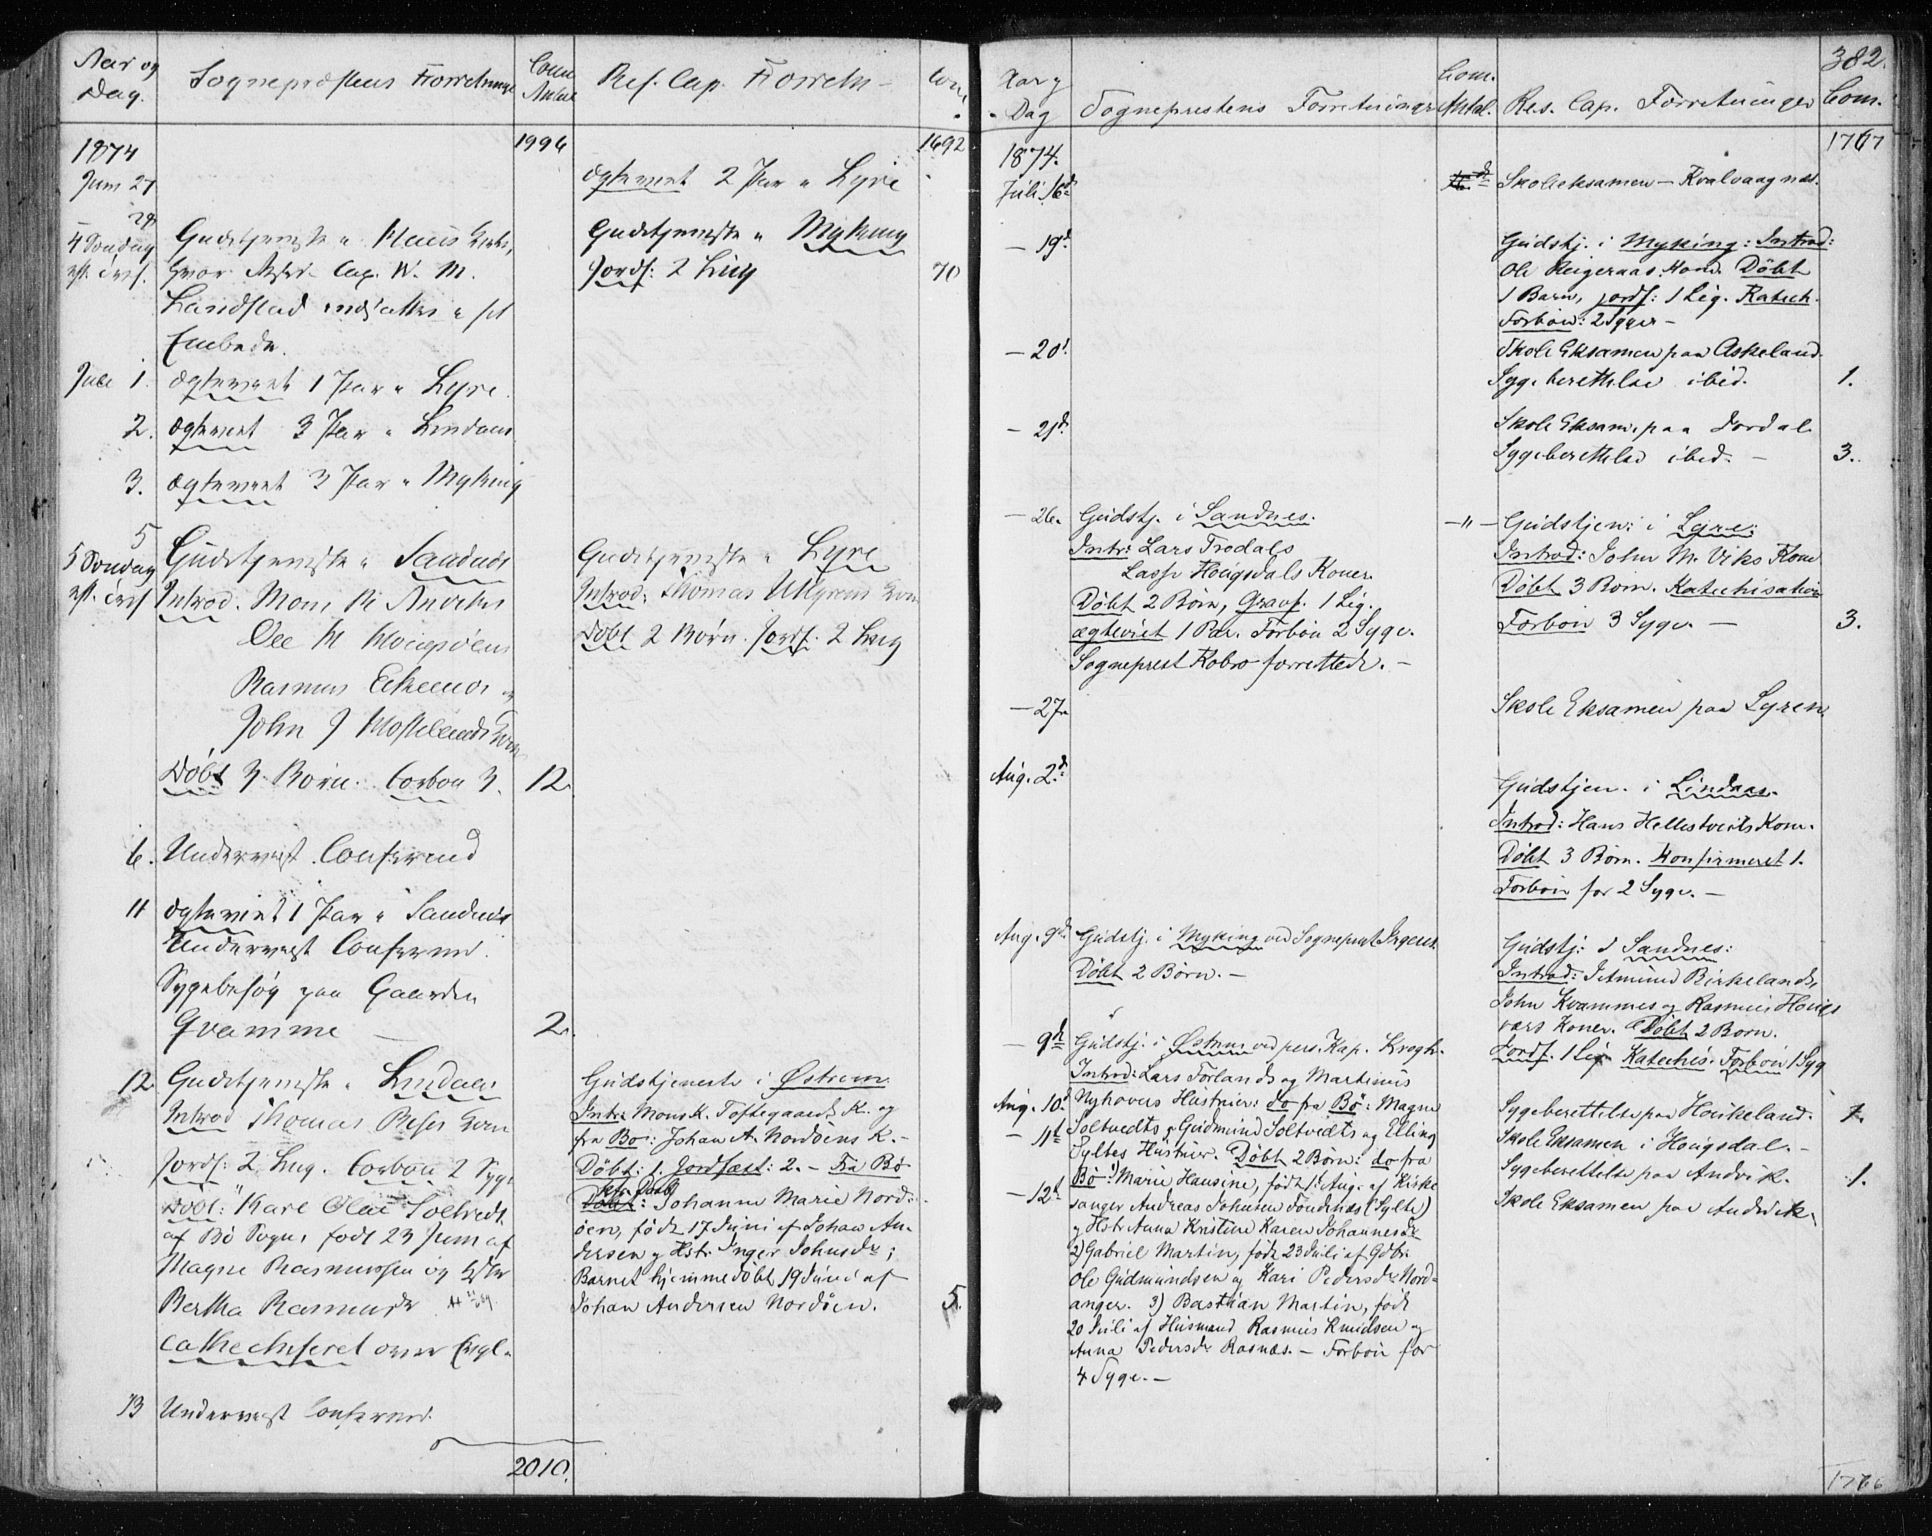 Aar og
Dag.
Sognepræstens Forretninger
Com
Antal
Res. Cap. Forretn-
Com.
1874
1996
1692
Juni 27
ægteviet 2 Par i Lyre
28
4 Søndag
eft. Trif.
Gudstjeneste i
hvor Cap. W. M.
Landstad indsattes i sit
Embede.
Gudstjeneste i Myking
Jordf: 2 Liig
70
Juli 1.
ægteviet 1 Par i Lyre.
2.
ægteviet 3 Par i Lindaas
3.
ægteviet 3 Par i Myking
5
5 Søndag
eft. Trif
Gudstjeneste i Sandnes
Introd. Mons
Ole M
Rasmus
John J
Døbt 3 Børn. Forbøn 3.
12.
Gudstjeneste i Lyre
Introd: Thomas
Døbt 2 Børn. Jordf. 2 Liig
6.
Underviist Conferend
11
ægteviet 1 Par i Sandnes
Underviist Conferend.
Sygebesøg paa Gaarden
Qvamme
2.
12
Gudstjeneste i Lindaas
Introd Thomas Risøs Kone
Jordf: 2 Liig. Forbøn 2 Syge
Døbt: Karl Olai Soltvedt
af Bø Sogn, født 23 Juni af
Magne Rasmussen og Hstr
Bertha Rasmusdr
Cathechiseret over Evgl.
Gudstjeneste i Østrem.
Intr: Mons K. Toftegaards K. og
fra Bø: Johan A. Nordøens K.-
Døbt: 1. Jordfæst: 2. - Fra Bø
Johanne Marie Nord-
øen, født 17 Juni af Johan An-
dersen og Hstr Inger Johnsdr;
Barnet hjemmedøbt 19 Juni af
Johan Andersen Nordöen.
5.
13
Underviist Conferend.
2010.
382.
Aar og
Dag
Sogneprestens Forretninger
Com.
Antal.
Res. Cap. Forretninger
Com.
1874.
1767
Juli 16d
Skoleeksamen - Kvalvaagnes.
- 19d
Gudstj. i Myking: Introd:
Ole Reigeraas Kone. Döbt
1 Barn, jordf: 1 Lig. Katech.
Forbön: 2 Syge -
- 20d
Skole Eksamen paa Askeland.
Sygeberettelse ibid.
1.
- 21d
Skole Eksam. paa Dordal
Sygeberettelse ibid. -
3.
- 26.
Gudstj. i Sandnes.
Intr: Lars Trodals
Lasse Hougsdals Koner.
Döbt 2 Börn, Gravf. 1 Lig.
ægteviet 1 Par. Forbön 2 Syge.
Sogneprest Kobro forrettede. -
- " -
Gudstjen: i Lyre:
Introd: John M. Viks Kone
Döbt 3 Born. Katechisation
Forbön 3 Syge. -
3.
- 27.
Skole Eksamen paa Lyren.
Aug. 2d
Gudstjen. i Lindaas.
Introd: Hans Hellestveits Kone.
Döbt 3 Börn. Konfirmeret 1.
Forbön for 2 Syge. -
Aug. 9de
Gudstj. i Myking ved Sogneprest
Döbt 2 Börn. -
Gudstj: i Sandnes:
Introd: Jetmund Birkelands,
John Kvammes og Rasmus Hougs
værs Koner. Döbt 2 Born.
Jordf. 1 Lig Katechis. Forbön 1 Syg
- 9de
Gudstj. i Østrem ved pers. Kap. Krogh.
Introd: Lars Forlands og Martinus
Nyhovers Hustruer: do fra Bö: Magne
Soltvedts og Gudmund Soltvedts og Elling
Syltes Hustruer. Döbt 2 Börn: do fra
Bö: 1) Marie Hansine, född 1 Aug. af Kirke
sanger Andreas Johnsen Fondenes (Sylte)
og Hstr Anna Kristine Karen Johannesdr
2) Gabriel Martin, född 23 Juli af Gdbr.
Ole Gudmundsen og Kari Pedersdr Nord-
anger. 3) Bastian Martin, född
20 Juli af Husmand Rasmus Knudsen og
Anna Pedersdr Rasnes. - Forbön for
4 Syge. -
Aug. 10d
Sygeberettelse paa Haukeland.
1.
- 11t
Skole Eksamen i Hougsdal. -
Sygeberettelse paa Andvik.
1.
- 12t
Skole Eksamen paa Andvik.
1766